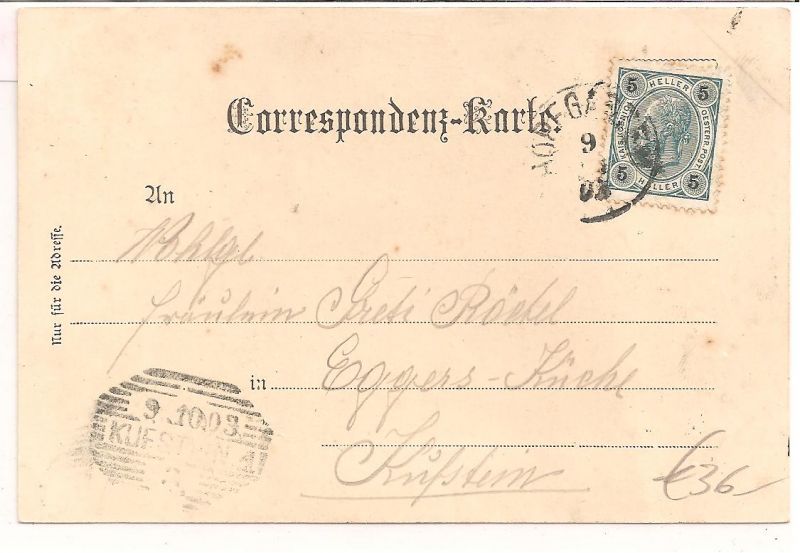 Correspondenz-Karte.
HOFGA
9
03
5 HELLER 5
KAIS. KÖNIGL. OESTERR. POST.
5 HELLER 5
An
Wohlgb.
Nur für die Adresse.
Fräulein Greti Röckel
in Eggers-Küche
Kufstein
9.10.03
KUFSTEIN
€36-